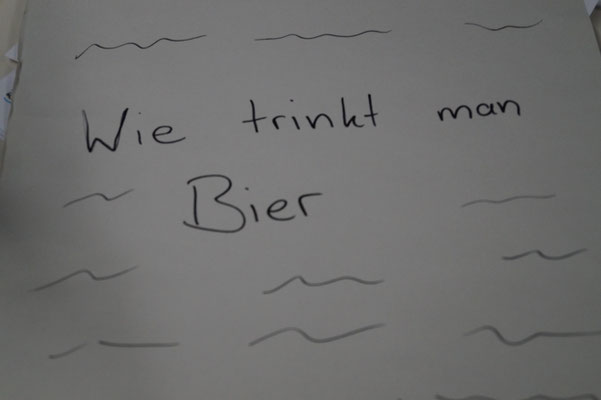 Wie trinkt man
Bier